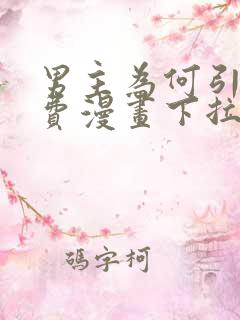 男主為何引
費漫畫下拉
碼字柯